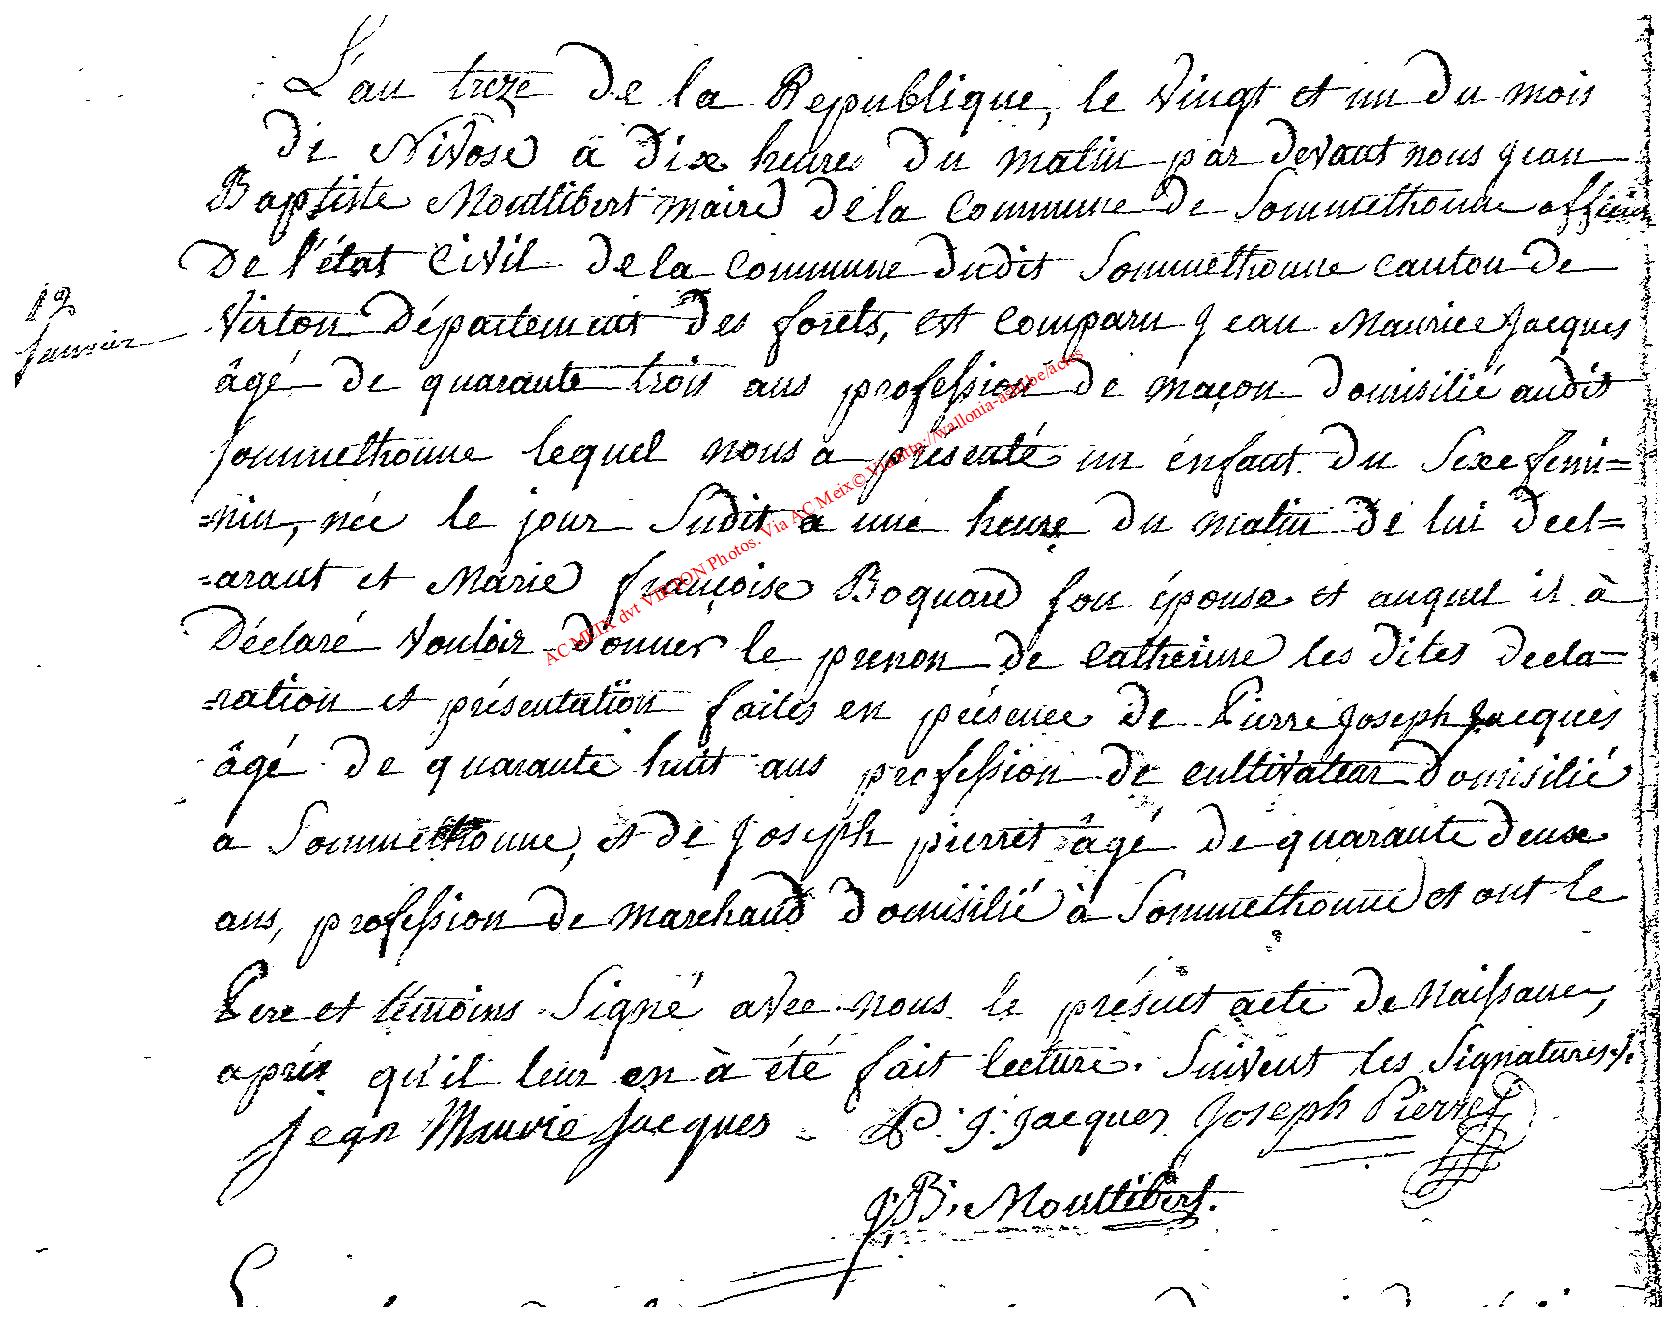 L'an treze de la Republique, le vingt et un du mois
de Nivose à dix heures du matin par devant nous jean
Baptiste Montlibert maire de la commune de Sommethonne officier
de l'état civil de la commune dudit Sommethonne canton de
12
janvier
virton Département des forets, est comparu jean Maurice Jacques
âgé de quarante trois ans profession de maçon domisilié audit
Sommethonne lequel nous a présenté un énfant du sexe fémi=
=nin, née le jour Sudit a une heure du matin de lui decl=
=arant et Marie françoise Boquard son épouse et auquel il à
Déclaré vouloir donner le prenon de catherine les dites decla=
=ration et présentation faites en présence de Pierre Joseph Jacques
âgé de quarante huit ans profession de cultivateur domisilié
a Sommethonne, et de Joseph pierret âgé de quarante deux
ans, profession de marchand domisilié à Sommethonne et ont le
Pere et témoins Signé avec nous le présent acte de naissance,
après qu'il leur en à été fait lecture. Suivent les Signatures ./.
Jean Mauvrie Jacques P. J. Jacques Joseph Pierret
J. B. Montlibert.
AC MEIX dvt VIRTON Photos. Via AC Meix© Via http://wallonia-asbl.be/actes